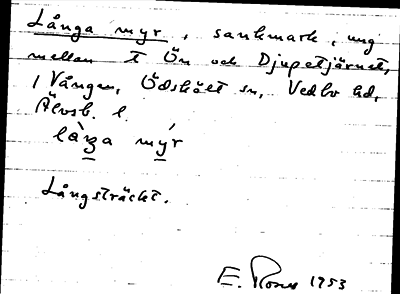 Långa myr, sankmark, ung
mellan t Ön och Djupetjärnet,
i Vången, Ödskölt sn, Vedbo hd,
Älvsb. l.
låŋa mýr
Långsträckt.
E. Rosén 1953